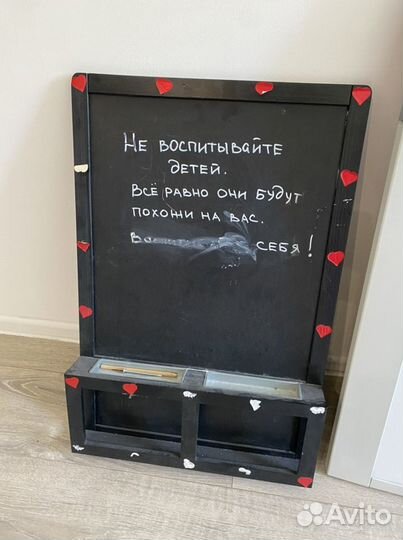 Не воспитывайте
детей.
Всё равно они будут
похожи на вас.
себя!
Avito